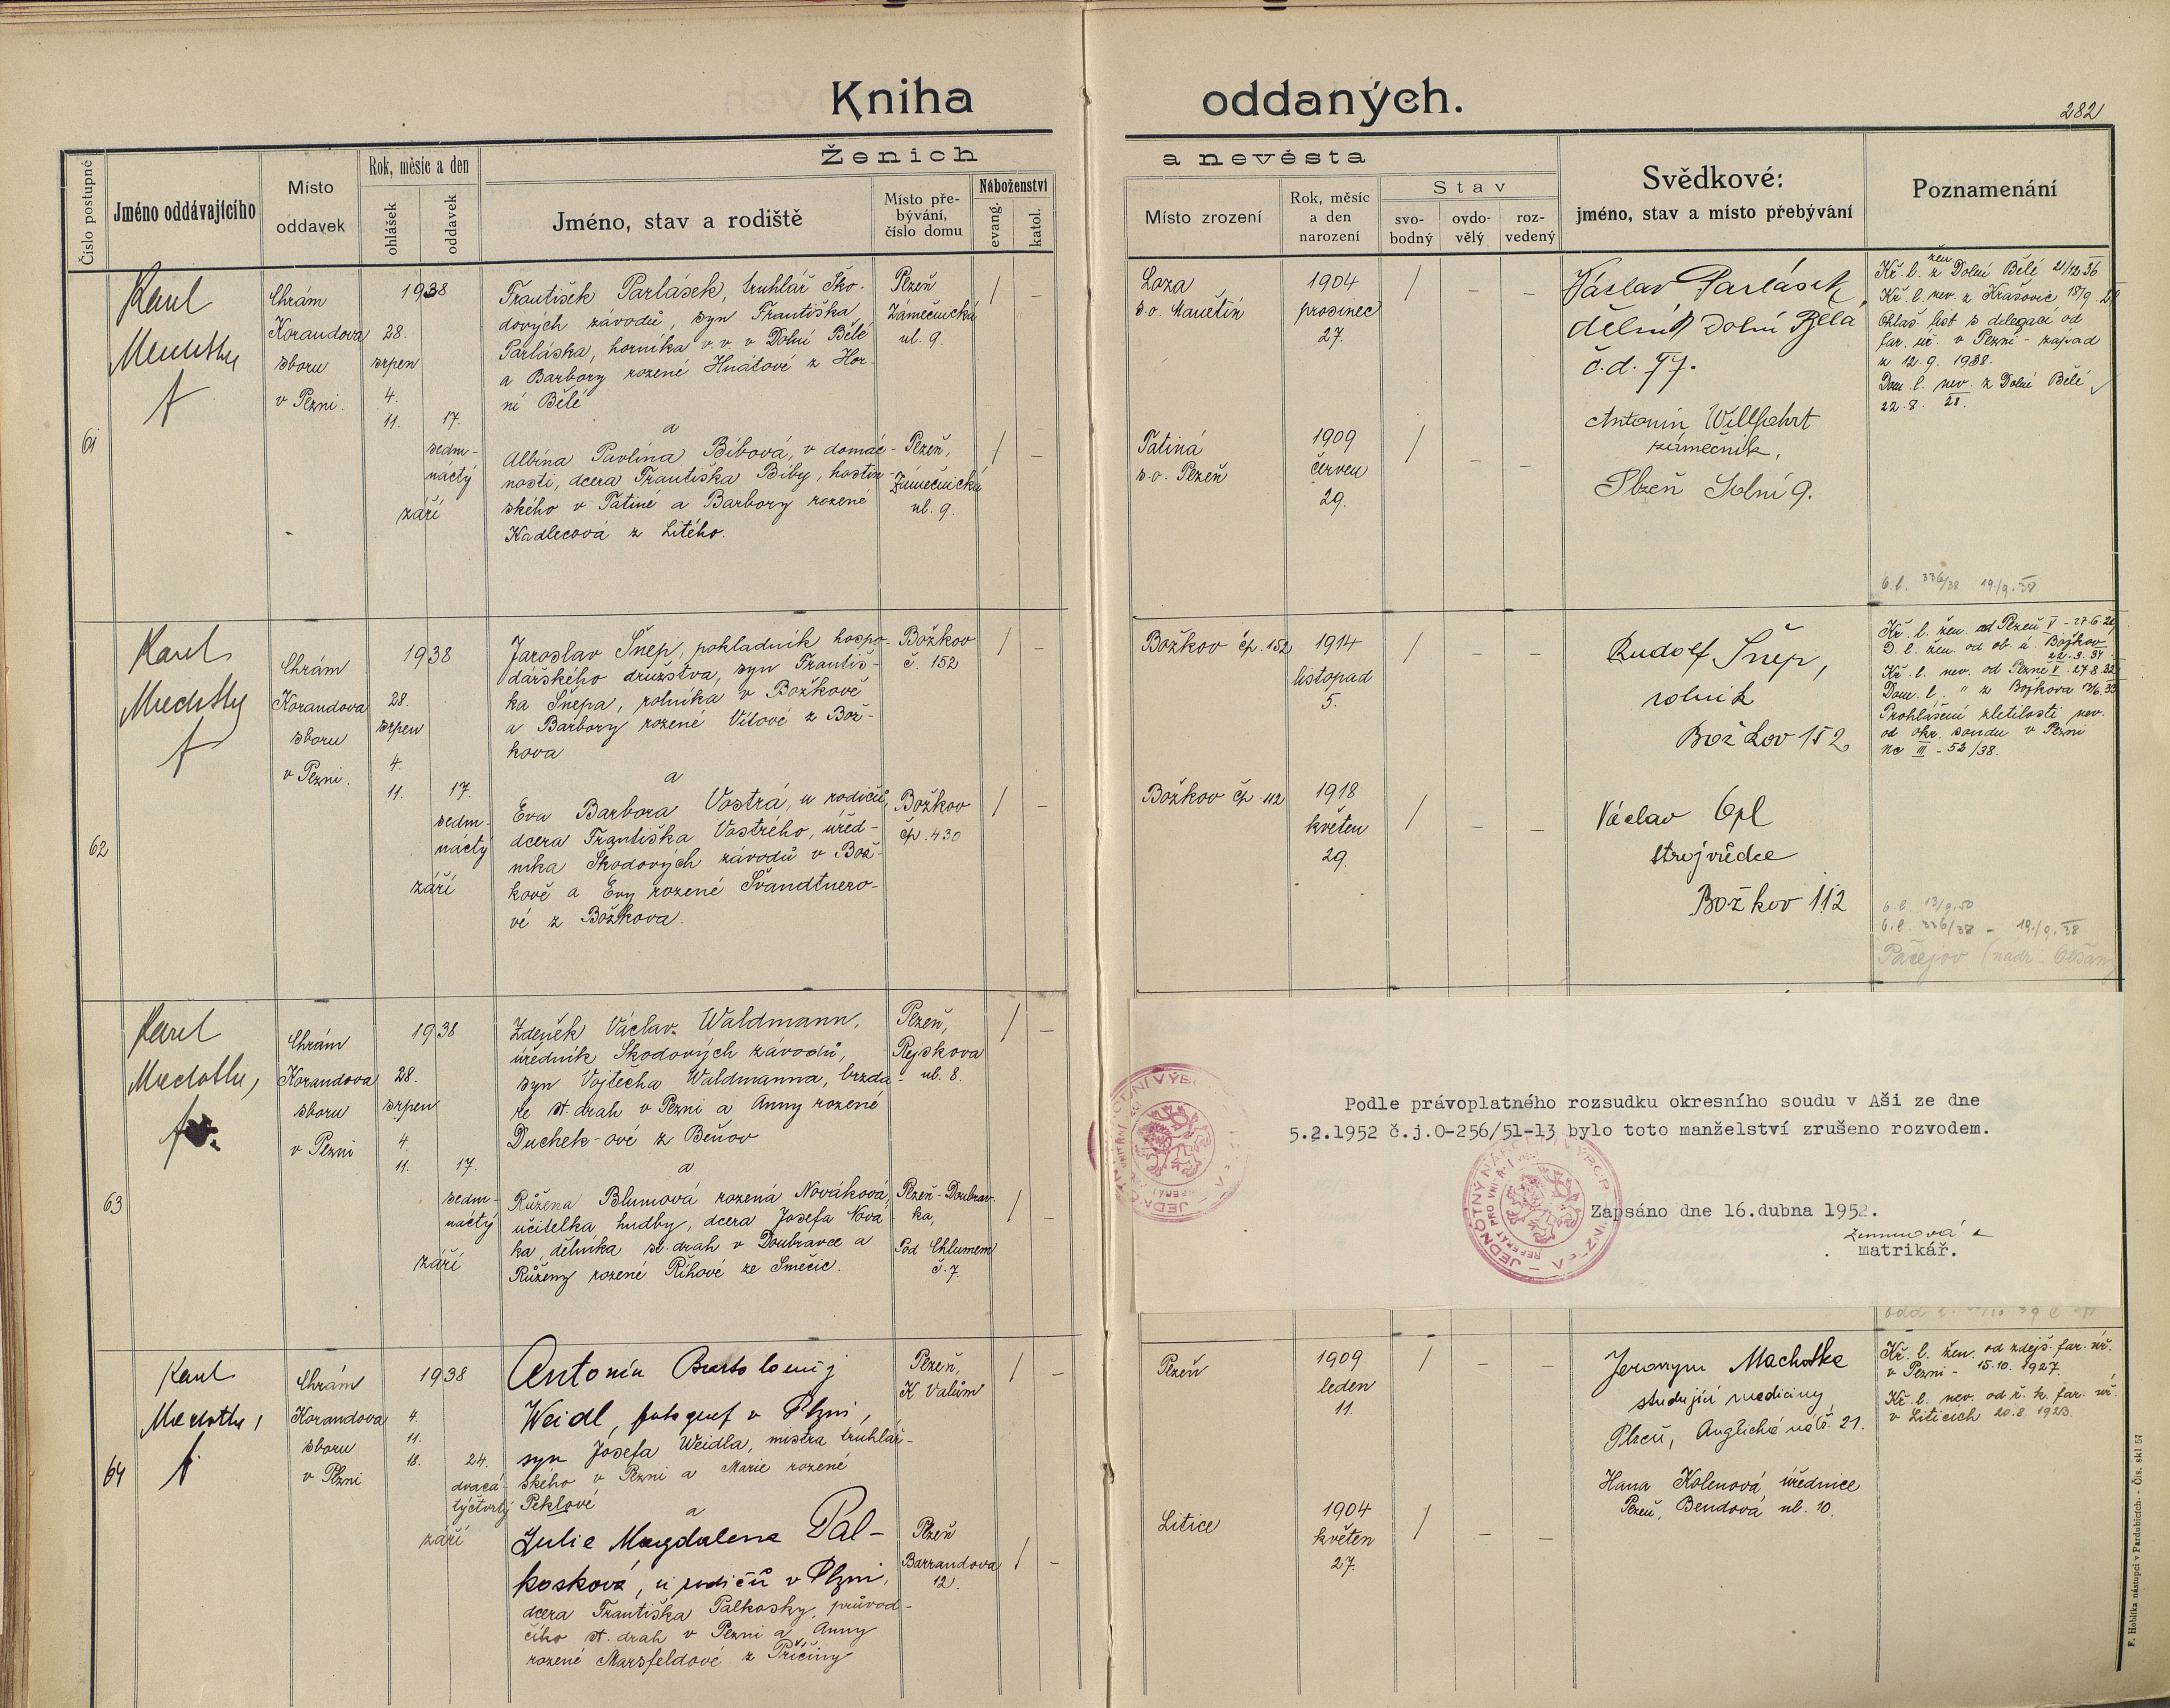 Kniha oddaných.
282
Ženich a nevěsta
Číslo postupné
Jméno oddávajícího
Místo
oddavek
Rok, měsíc a den
ohlášek
oddavek
Jméno, stav a rodiště
Místo pře-
bývání,
číslo domu
Náboženství
evang.
katol.
Místo zrození
Rok, měsíc
a den
narození
Stav
svo-
bodný
ovdo-
vělý
roz-
vedený
Svědkové:
jméno, stav a místo přebývání
Poznamenání
61
Karel
Chrám
Korandova
sboru
v Plzni.
1938
28.
srpen
4.
11.
17.
sedm-
náctý
září
František Parlásek, truhlář Ško-
dových závodů, syn Františka
Parláska, horníka v.v. v Dolní Bělé
a Barbory rozené Hnátové z Hor-
ní Bělé
a
Albína Pavlína Bíbová, v domác-
nosti, dcera Františka Bíby, hostin-
ského v Tatiné a Barbory rozené
Kadlecová z Litého.
Plzeň
Zámečnická
ul. 9.
Plzeň,
Zámečnická
ul. 9.
Loza
s.o. Manětín
1904
prosinec
27.
Tatiná
s.o. Plzeň
1909
červen
29.
Václav Parlásek,
dělník Dolní Bělá
č.d. 77.
Antonín Willfahrt
zámečník,
Plzeň Solní 9.
Kř. l. žen. z Dolní Bělé 21/12 36
Kř. l. nev. z Krašovic 18/9.
Ohláš. list s delegací od
far. úř. v Plzni - západ
z 12.9. 1938.
Dom. l. nev. z Dolní Bělé
22. 8. 28.
o.l. 336/38 19./9.38
62
Karel
Chrám
Korandova
sboru
v Plzni.
1938
28.
srpen
4.
11.
17.
sedm-
náctý
září
Jaroslav Šnep, pokladník hospo-
dářského družstva, syn Františ-
ka Šnepa, rolníka v Božkově
a Barbory rozené Vítové z Bož-
kova
a
Eva Barbora Vostrá, u rodičů,
dcera Františka Vostrého, úřed-
níka Škodových závodů v Bož-
kově a Evy rozené Švandtnero-
vé z Božkova.
Božkov
č. 152
Božkov
čp. 430
Božkov čp. 152
1914
listopad
5.
Božkov čp. 112
1918
květen
29.
Rudolf Šnep,
rolník
Božkov 152
Václav Opl
strojvůdce
Božkov 112
Kř. l. žen. od Plzeň V - 27.6.
D. l. žen. od ob. ú. Božkov
22. 3. 34.
Kř. l. nev. od Plzně V. 27.8.32
Dom. l. " z Božkova
Prohlášení zletilosti nev.
od okr. soudu v Plzni
Nc III - 52/38.
o.l. 13/9.50
o.l. 336/38 - 19./9.38
Pačejov
63
Karel
Chrám
Korandova
sboru
v Plzni
1938
28.
srpen
4.
11.
17.
sedm-
náctý
září
Zdeněk Václav Waldmann,
úředník Škodových závodů,
syn Vojtěcha Waldmanna, brzda-
ře st. drah v Plzni a Anny rozené
Duchek-ové z Beňov
a
Růžena Blumová rozená Nováková,
učitelka hudby, dcera Josefa Nová-
ka, dělníka st. drah v Doubravce a
Růženy rozené Říhové ze Smečic.
Plzeň,
Ryskova
ul. 8.
Plzeň-Doubrav-
ka,
Pod Chlumem
č. 7.
Podle právoplatného rozsudku okresního soudu v Aši ze dne
5.2.1952 č.j.O-256/51-13 bylo toto manželství zrušeno rozvodem.
Zapsáno dne 16.dubna 1952.
matrikář.
64
Karel
Chrám
Korandova
sboru
v Plzni
1938
4.
11.
18.
24.
dvacá-
týčtvrtý
září
Antonín Bartoloměj
Weidl, fotograf v Plzni,
syn Josefa Weidla, mistra truhlář-
ského v Plzni a Marie rozené
Peklové
a
Julie Magdalena Pal-
kosková, u rodičů v Plzni,
dcera Františka Palkosky, průvod-
čího st. drah v Plzni a Anny
rozené Marsfeldové z Příčiny
Plzeň,
K Valům
Plzeň
Barrandova
12.
Plzeň
1909
leden
11.
Litice
1904
květen
27.
Jeronym Machotka
studující mediciny
Plzeň, Anglické náb. 21.
Hana Kolenová, úřednice
Plzeň, Bendova ul. 10.
Kř. l. žen. od zdejš. far. úř.
v Plzni - 15.10. 1927.
Kř. l. nev. od ř. k. far. úř.
v Liticích 20.8. 1923.
F. Hoblíka nástupci v Pardubicích. - Čís. skl 57